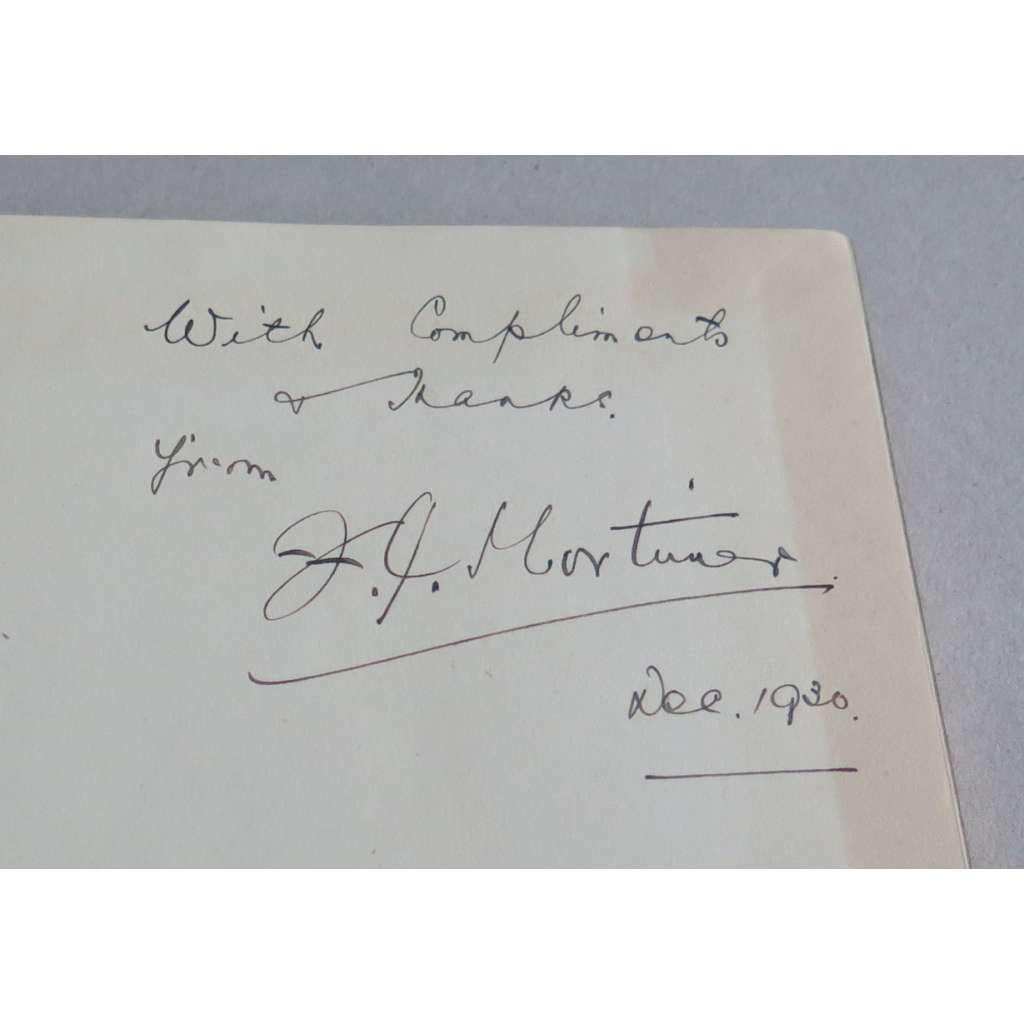 With Compliments
& Thanks.
from
F. J. Mortimer.
Dec. 1930.